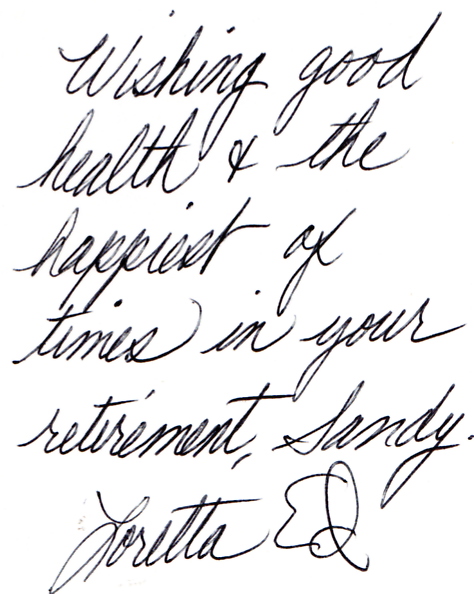 Wishing good
health & the
happiest of
times in your
retirement, Sandy.
Loretta Ed